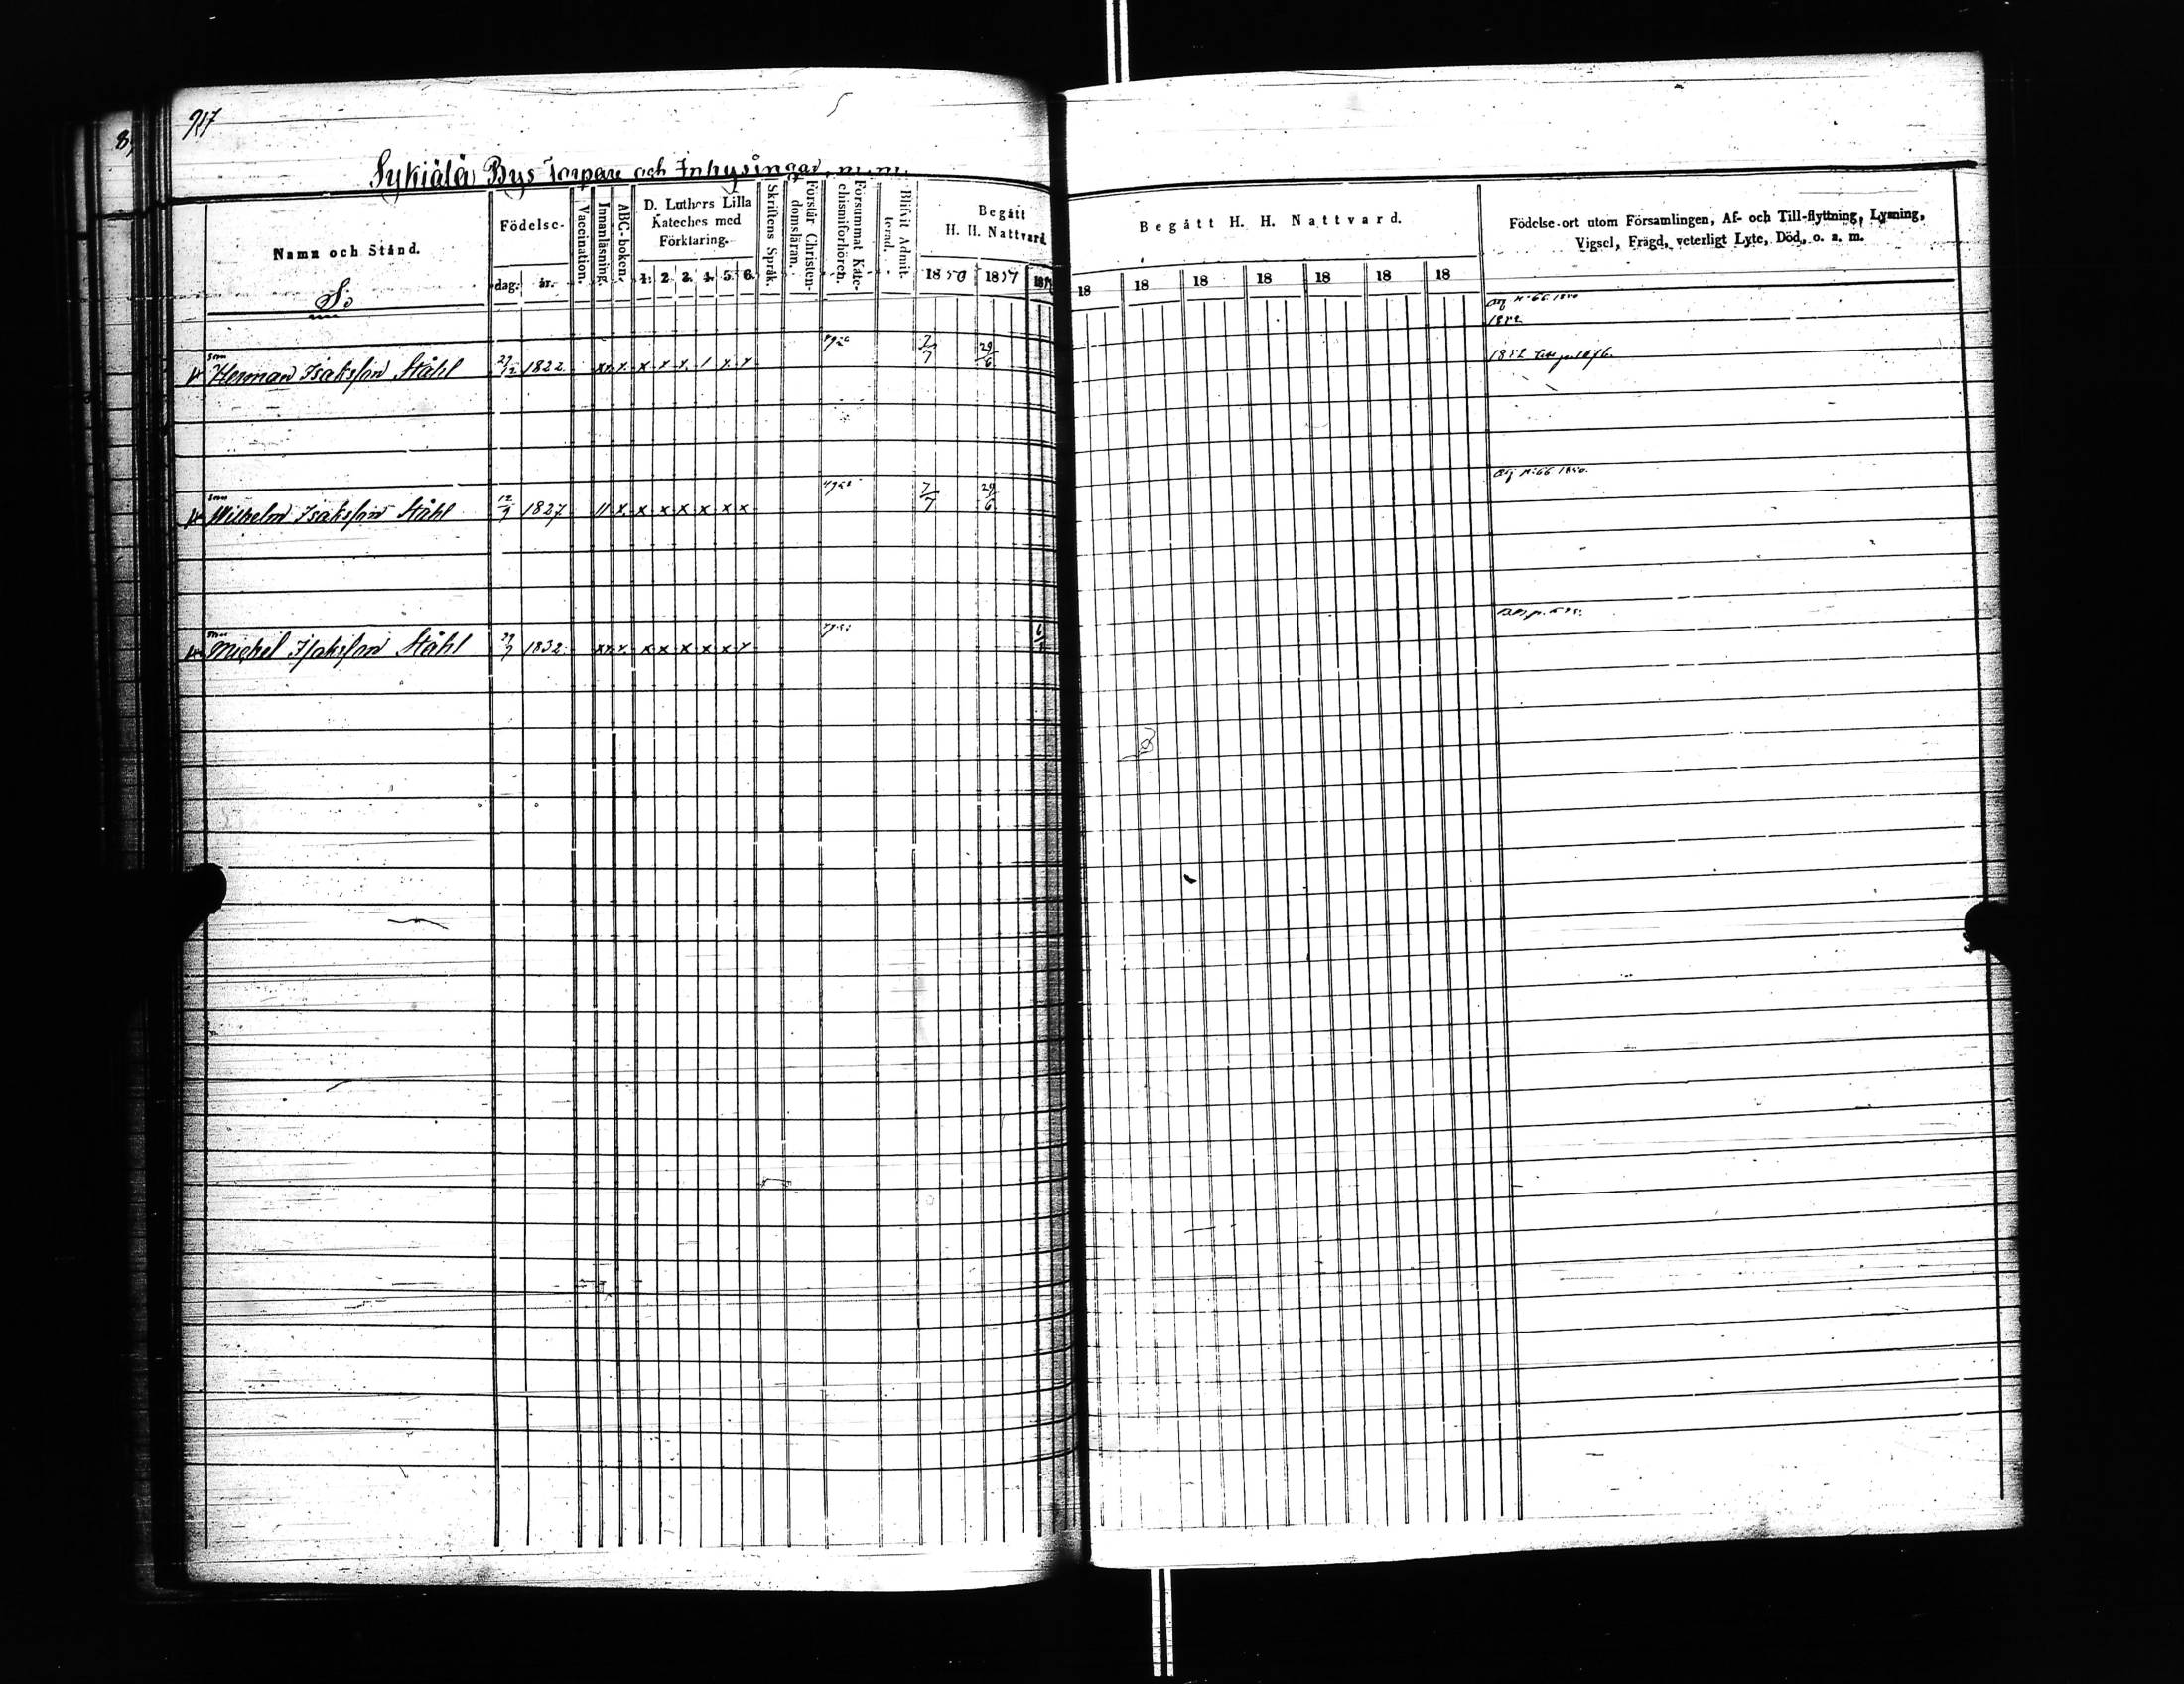 917
Sykiälä Bys Torpare och Inhysingar, m.m.
Namn och Stånd.
S:o
Födelse-
dag. år.
Vaccination.
Innanläsning.
ABC-boken.
D. Luthers Lilla
Kateches med
Förklaring.
1. 2. 3. 4. 5. 6.
Skriftens Språk.
Förstår Christen-
domsläran.
Försummat Kate-
chismiförhören.
Blifvit Admit-
terad.
Begått
H. H. Nattvard.
1850 1857
Begått H. H. Nattvard.
18 18 18 18 18 18 18
Födelse-ort utom Församlingen, Af- och Till-flyttning, Lysning,
Vigsel, Frägd, veterligt Lyte, Död, o. a. m.
N:66 1850
1852
son
Herman Isaksson Ståhl 1822 x x x x / x x 7/7 29/6 1852
N:66 1850.
son
Wilhelm Isaksson Ståhl 12/9 1827 11 x x x x x x x 7/7 29/6
son
Michel Isaksson Ståhl 1832 xx x x x x x x x